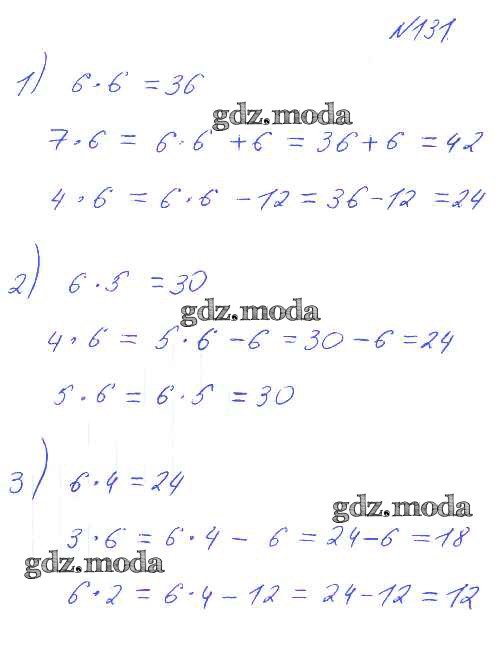 №131.
1) 6·6 = 36
gdz.moda
7·6 = 6·6 +6 = 36+6 = 42
4·6 = 6·6 -12 = 36-12 = 24
2) 6·5 = 30
gdz.moda
4·6 = 5·6 -6 = 30-6 = 24
5·6 = 6·5 = 30
3) 6·4 = 24
gdz.moda
3·6 = 6·4 - 6 = 24-6 = 18
gdz.moda
6·2 = 6·4 -12 = 24-12 = 12